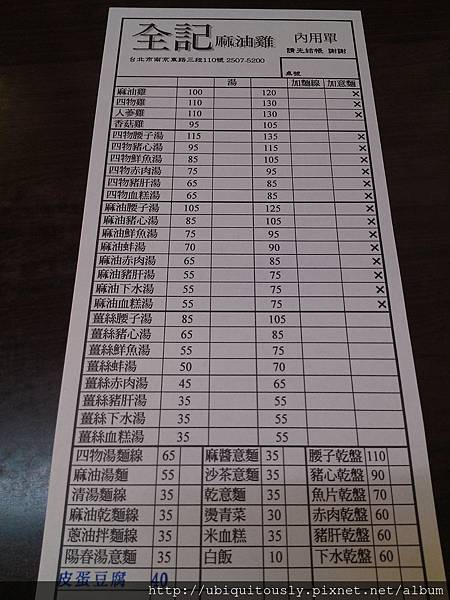 全記麻油雞 內用單
請先結帳 謝謝
台北市南京東路三段110號 2507-5200
桌號
湯 加麵線 加意麵
麻油雞 100 120 ×
四物雞 110 130 ×
人蔘雞 110 130 ×
香菇雞 95 105
四物腰子湯 115 135 ×
四物豬心湯 95 115 ×
四物鮮魚湯 85 105 ×
四物赤肉湯 75 95 ×
四物豬肝湯 65 85 ×
四物血糕湯 65 85 ×
麻油腰子湯 105 125 ×
麻油豬心湯 85 105 ×
麻油鮮魚湯 75 95 ×
麻油蚌湯 70 90 ×
麻油赤肉湯 65 85 ×
麻油豬肝湯 55 75 ×
麻油下水湯 55 75 ×
麻油血糕湯 55 75 ×
薑絲腰子湯 85 105
薑絲豬心湯 65 85
薑絲鮮魚湯 55 75
薑絲蚌湯 50 70
薑絲赤肉湯 45 65
薑絲豬肝湯 35 55
薑絲下水湯 35 55
薑絲血糕湯 35 55
四物湯麵線 65 麻醬意麵 35 腰子乾盤 110
麻油湯麵 55 沙茶意麵 35 豬心乾盤 90
清湯麵線 35 乾意麵 35 魚片乾盤 70
麻油乾麵線 35 燙青菜 30 赤肉乾盤 60
蔥油拌麵線 35 米血糕 35 豬肝乾盤 60
陽春湯意麵 35 白飯 10 下水乾盤 60
皮蛋豆腐 40
http://ubiquitously.pixnet.net/album